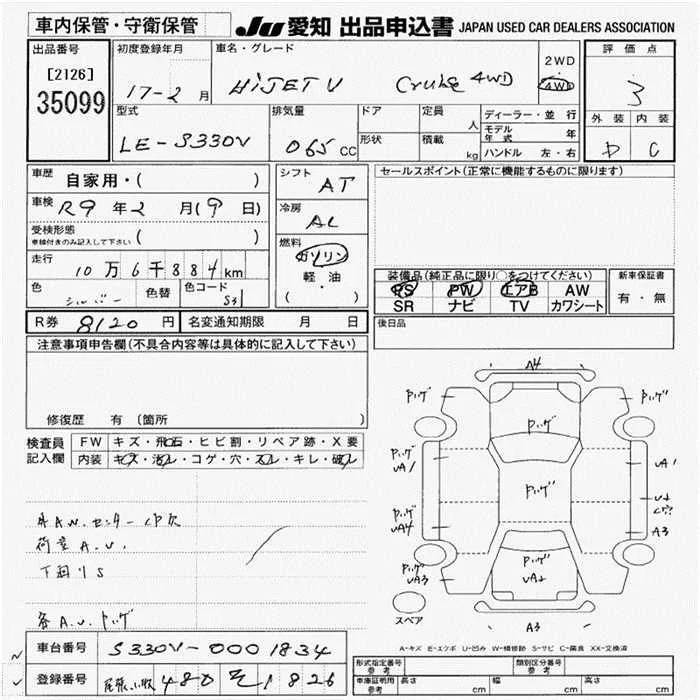 車内保管・守衛保管
JU 愛知 出品申込書 JAPAN USED CAR DEALERS ASSOCIATION
出品番号
[2126]
35099
初度登録年月
17-2 月
車名・グレード
HIJET V Cruise 4WD
2WD
4WD
評価点
3
外装 内装
D C
型式
LE-S330V
排気量
065 CC
ドア
形状
定員 人
積載 kg
ディーラー・並行
モデル年式 年
ハンドル 左・右
車歴
自家用・( )
車検 R9年2月(9日)
受検形態
車検付きのみ記入して下さい ( )
走行
10万6千884km
色
シルバー
色替
色コード
S31
シフト
AT
冷房
AC
燃料
ガソリン
軽油
( ・・ )
セールスポイント(正常に機能するものに限ります)
装備品(純正品に限り○をつけてください)
PS PW エアB AW
SR ナビ TV カワシート
新車保証書
有・無
R券 8120円
名変通知期限 月 日
後日品
注意事項申告欄(不具合内容等は具体的に記入して下さい)
修復歴 有 (箇所 )
検査員記入欄
FW キズ・飛石・ヒビ割・リペア跡・X要
内装 キズ・汚レ・コゲ・穴・スレ・キレ・破レ
荷室A.U.
下回りS
各A.U.
A4
UA1
UA4
UA3
UA1
A3
A3
スペア
A-キズ E-エクボ U-凹み W-補修跡 S-サビ C-腐食 XX-交換済
車台番号 S330V-0001834
登録番号 480 826
形式指定番号
参考
類別区分番号
参考
車庫証明用
参考
長さ cm
幅 cm
高さ cm